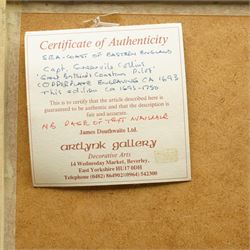 Certificate of Authenticity
SEA-COAST OF EASTERN ENGLAND
Capt. Greenvile Collins
'Great Britain's Coasting Pilot'
COPPERPLATE ENGRAVING CA 1693
This edition CA 1693-1750
This is to certify that the article described here is
guaranteed to be authentic and that the description is
fair and accurate.
NB PAGE OF TEXT AVAILABLE
James Douthwaite Ltd.
artlynk gallery
Decorative Arts
14 Wednesday Market, Beverley,
East Yorkshire HU17 0DH
Telephone (0482) 864902/(0964) 542300